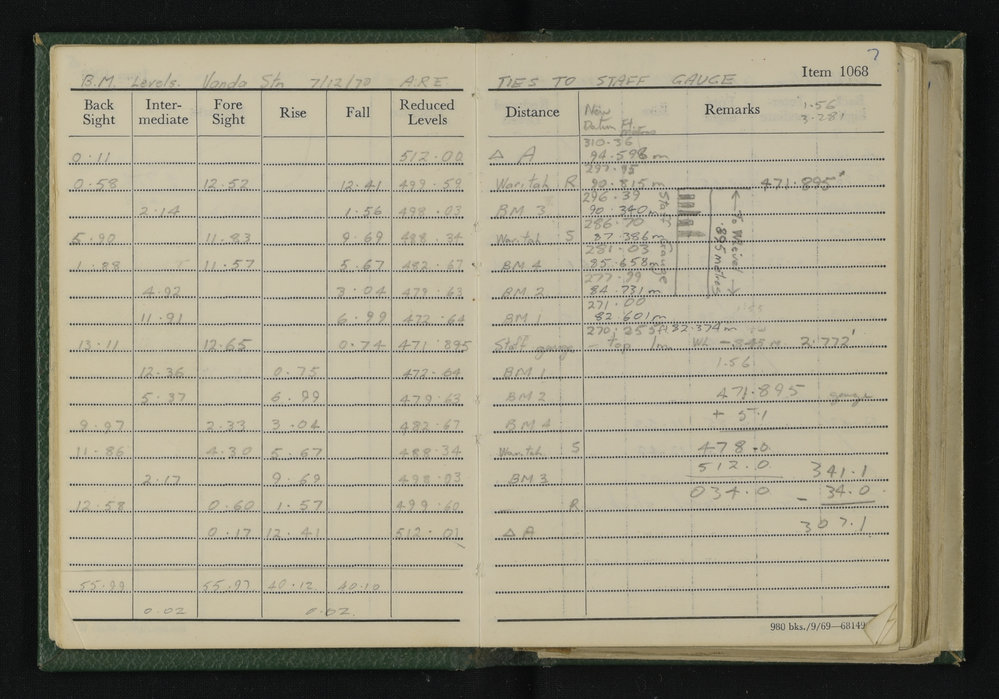 B.M. Levels. Vanda Stn 7/12/70 A.R.E
Back Sight Inter- mediate Fore Sight Rise Fall Reduced Levels
0.11 512.00
0.58 12.52 12.41 499.59
2.14 1.56 498.03
5.90 11.83 9.69 488.34
1.88 11.57 5.67 482.67
4.92 3.04 479.63
11.91 6.99 472.64
13.11 12.65 0.74 471.895
12.36 0.75 472.64
5.37 6.99 479.63
9.97 2.33 3.04 482.67
11.86 4.30 5.67 488.34
2.17 9.69 498.03
12.58 0.60 1.57 499.60
0.17 12.41 512.01
55.99 55.97 40.12 40.10
0.02 0.02
7
TIES TO STAFF GAUGE Item 1068
Distance Now Datum Ft. Metres Remarks 1.56
3.281
310.36
Δ A 94.598 m
297.95
Waritah R 90.815 m 471.895'
296.39
BM 3 90.340 m
286.70
Waritah S 87.386 m
281.03
BM 4 85.658 m
277.99
BM 2 84.731 m
271.00
BM 1 82.601 m
Staff Gauge
To W level
.895 metres
270.255 ft 82.374 m
Staff gauge - top 1m WL -.845 m 2.772'
BM 1 1.56
BM 2 471.895 gauge
BM 4 + 5.1
Waritah S 478.0
BM 3 512.0 341.1
R 034.0 - 34.0
Δ A 307.1
980 bks./9/69—68149